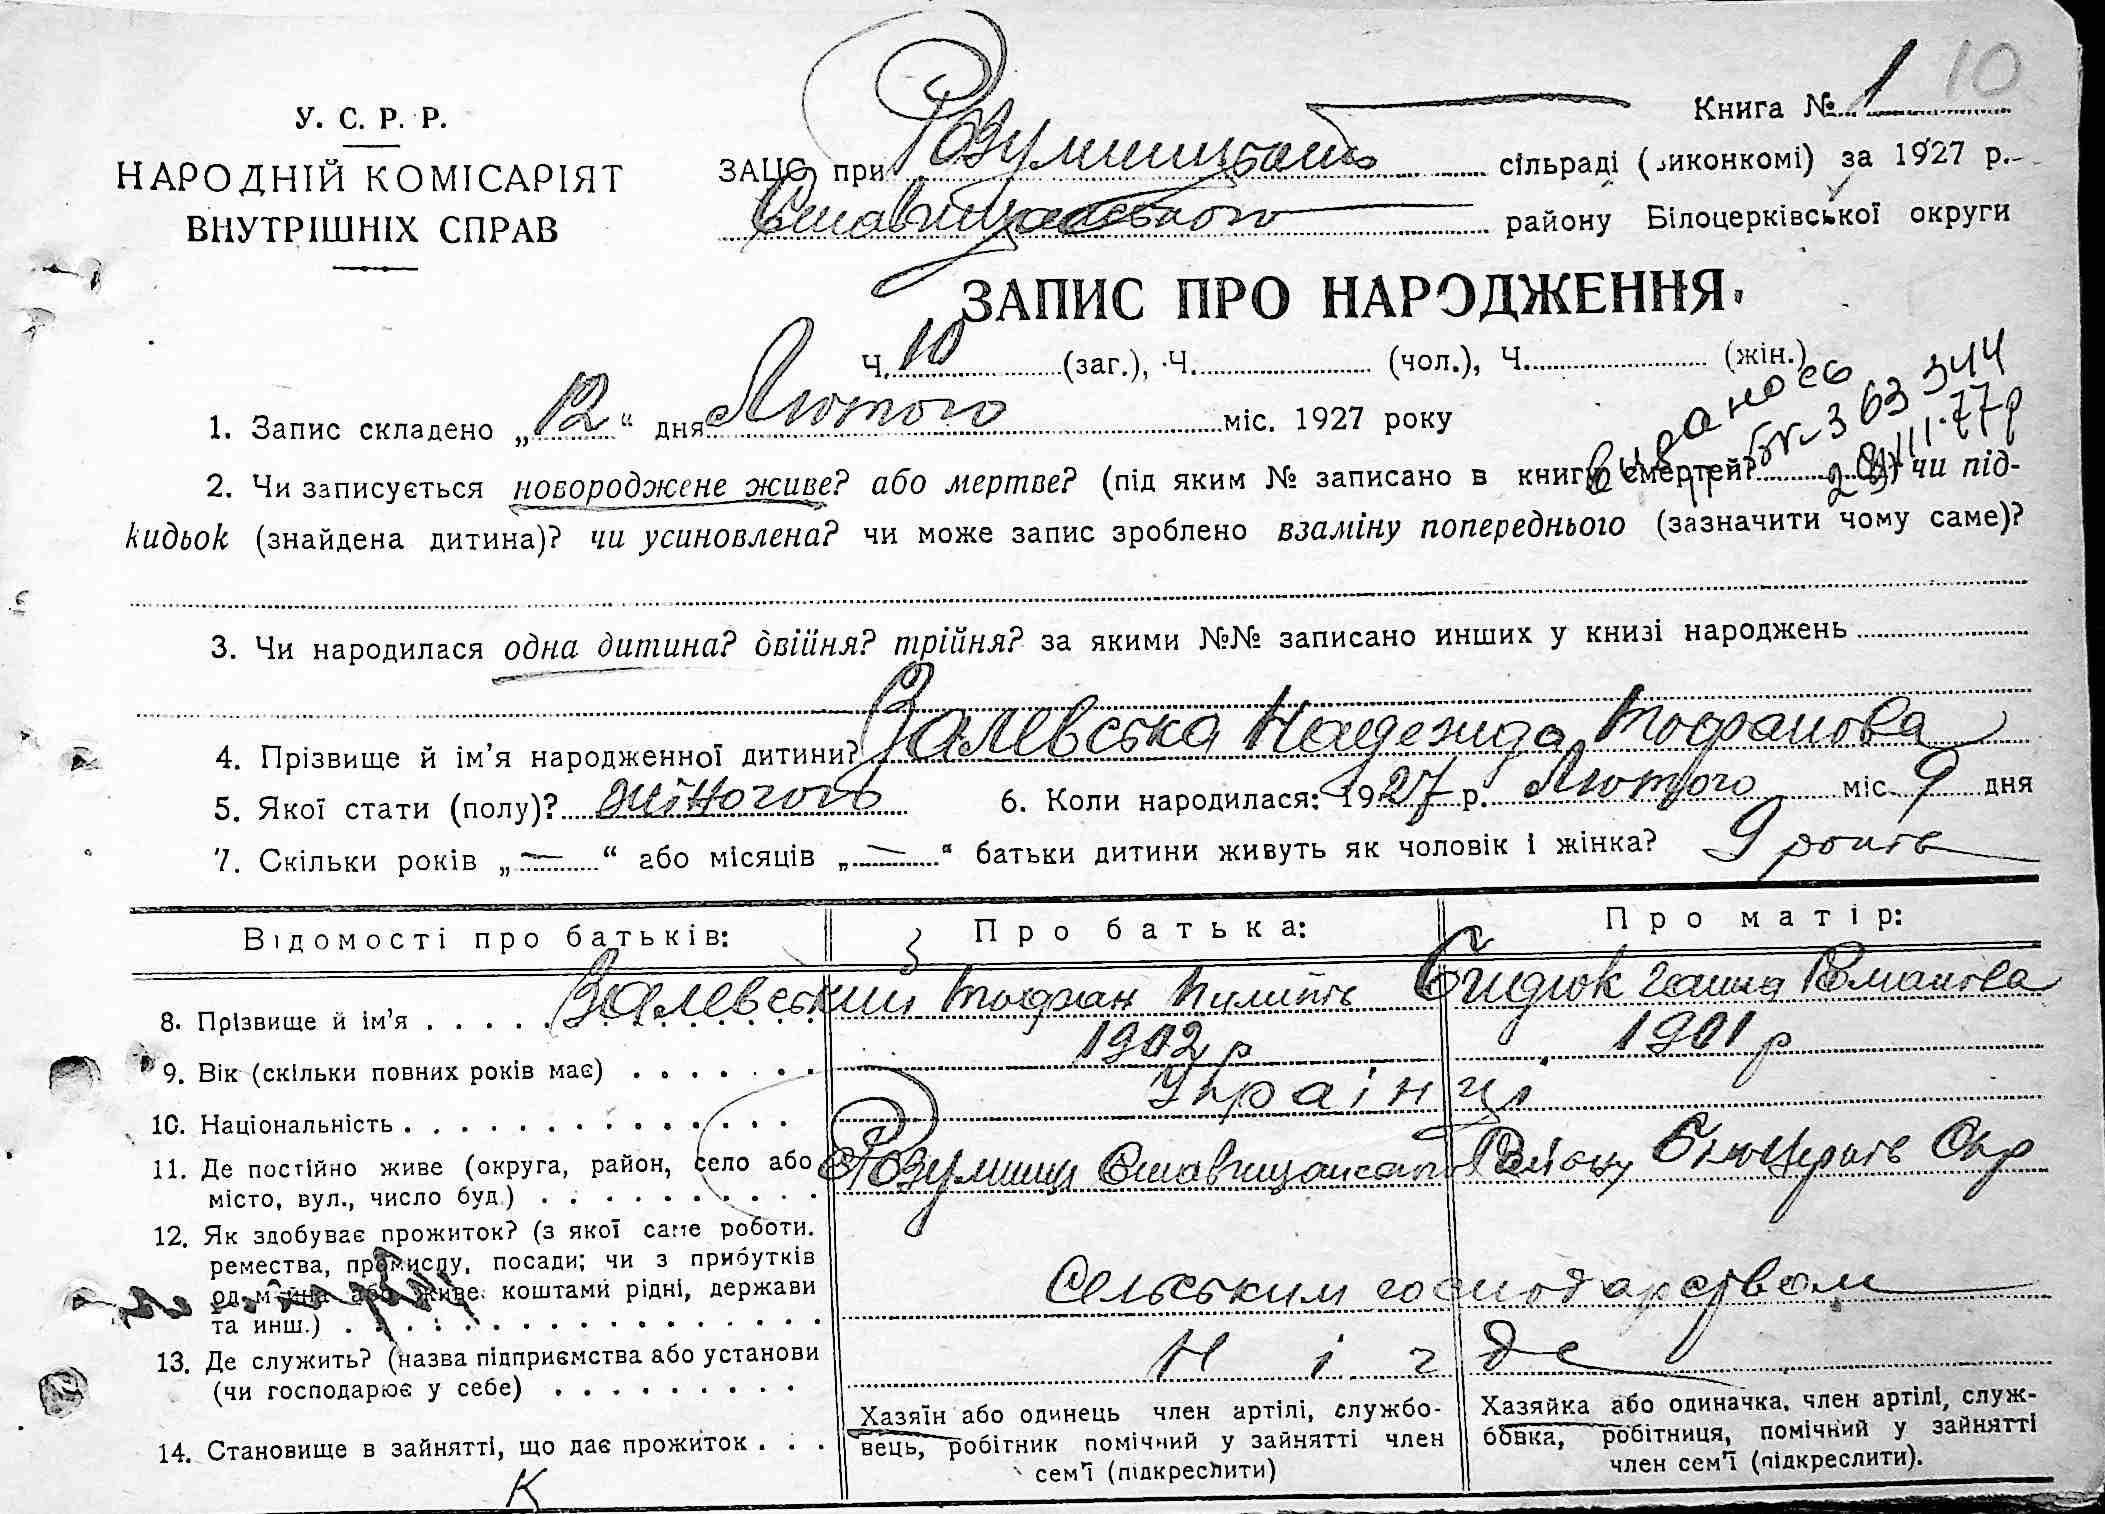 Книга № 1 10
У. С. Р. Р.
НАРОДНІЙ КОМІСАРІЯТ
ВНУТРІШНІХ СПРАВ
ЗАЦС при сільраді (виконкомі) за 1927 р.
району Білоцерківської округи
ЗАПИС ПРО НАРОДЖЕННЯ.
Ч. 10 (заг.), Ч. (чол.), Ч. (жін.)
1. Запис складено „12“ дня Лютого міс. 1927 року
363344
2. Чи записується новороджене живе? або мертве? (під яким № записано в книгу смертей? ) чи під-
кидьок (знайдена дитина)? чи усиновлена? чи може запис зроблено взаміну попереднього (зазначити чому саме)?
3. Чи народилася одна дитина? двійня? трійня? за якими №№ записано инших у книзі народжень
4. Прізвище й ім'я народженної дитини? Залевська Надежда Тофанова
5. Якої стати (полу)? 6. Коли народилася: 1927 р. Лютого міс. 9 дня
7. Скільки років „—“ або місяців „—“ батьки дитини живуть як чоловік і жінка? 9 років
Відомості про батьків: Про батька: Про матір:
8. Прізвище й ім'я . . . . Залевський Тофан Пилипів Гандя Романова
9. Вік (скільки повних років має) . . . . . . . 1902 р 1901 р
10. Національність . . . . . . . . . . . . . . Українці
11. Де постійно живе (округа, район, село або
місто, вул., число буд.) . . . . . . . . . . Окр
12. Як здобуває прожиток? (з якої саме роботи.
ремества, промислу, посади; чи з прибутків
од майна або живе коштами рідні, держави
та инш.) . . . . . . . . . . . . . . . . . Сельським господарством
13. Де служить? (назва підприємства або установи
(чи господарює у себе) . . . . . . . . . Нігде
14. Становище в зайнятті, що дає прожиток . . .
Хазяїн або одинець член артілі, службо-
вець, робітник помічний у зайнятті член
сем'ї (підкреслити)
Хазяйка або одиначка, член артілі, служ-
бовка, робітниця, помічний у зайнятті
член сем'ї (підкреслити).
К